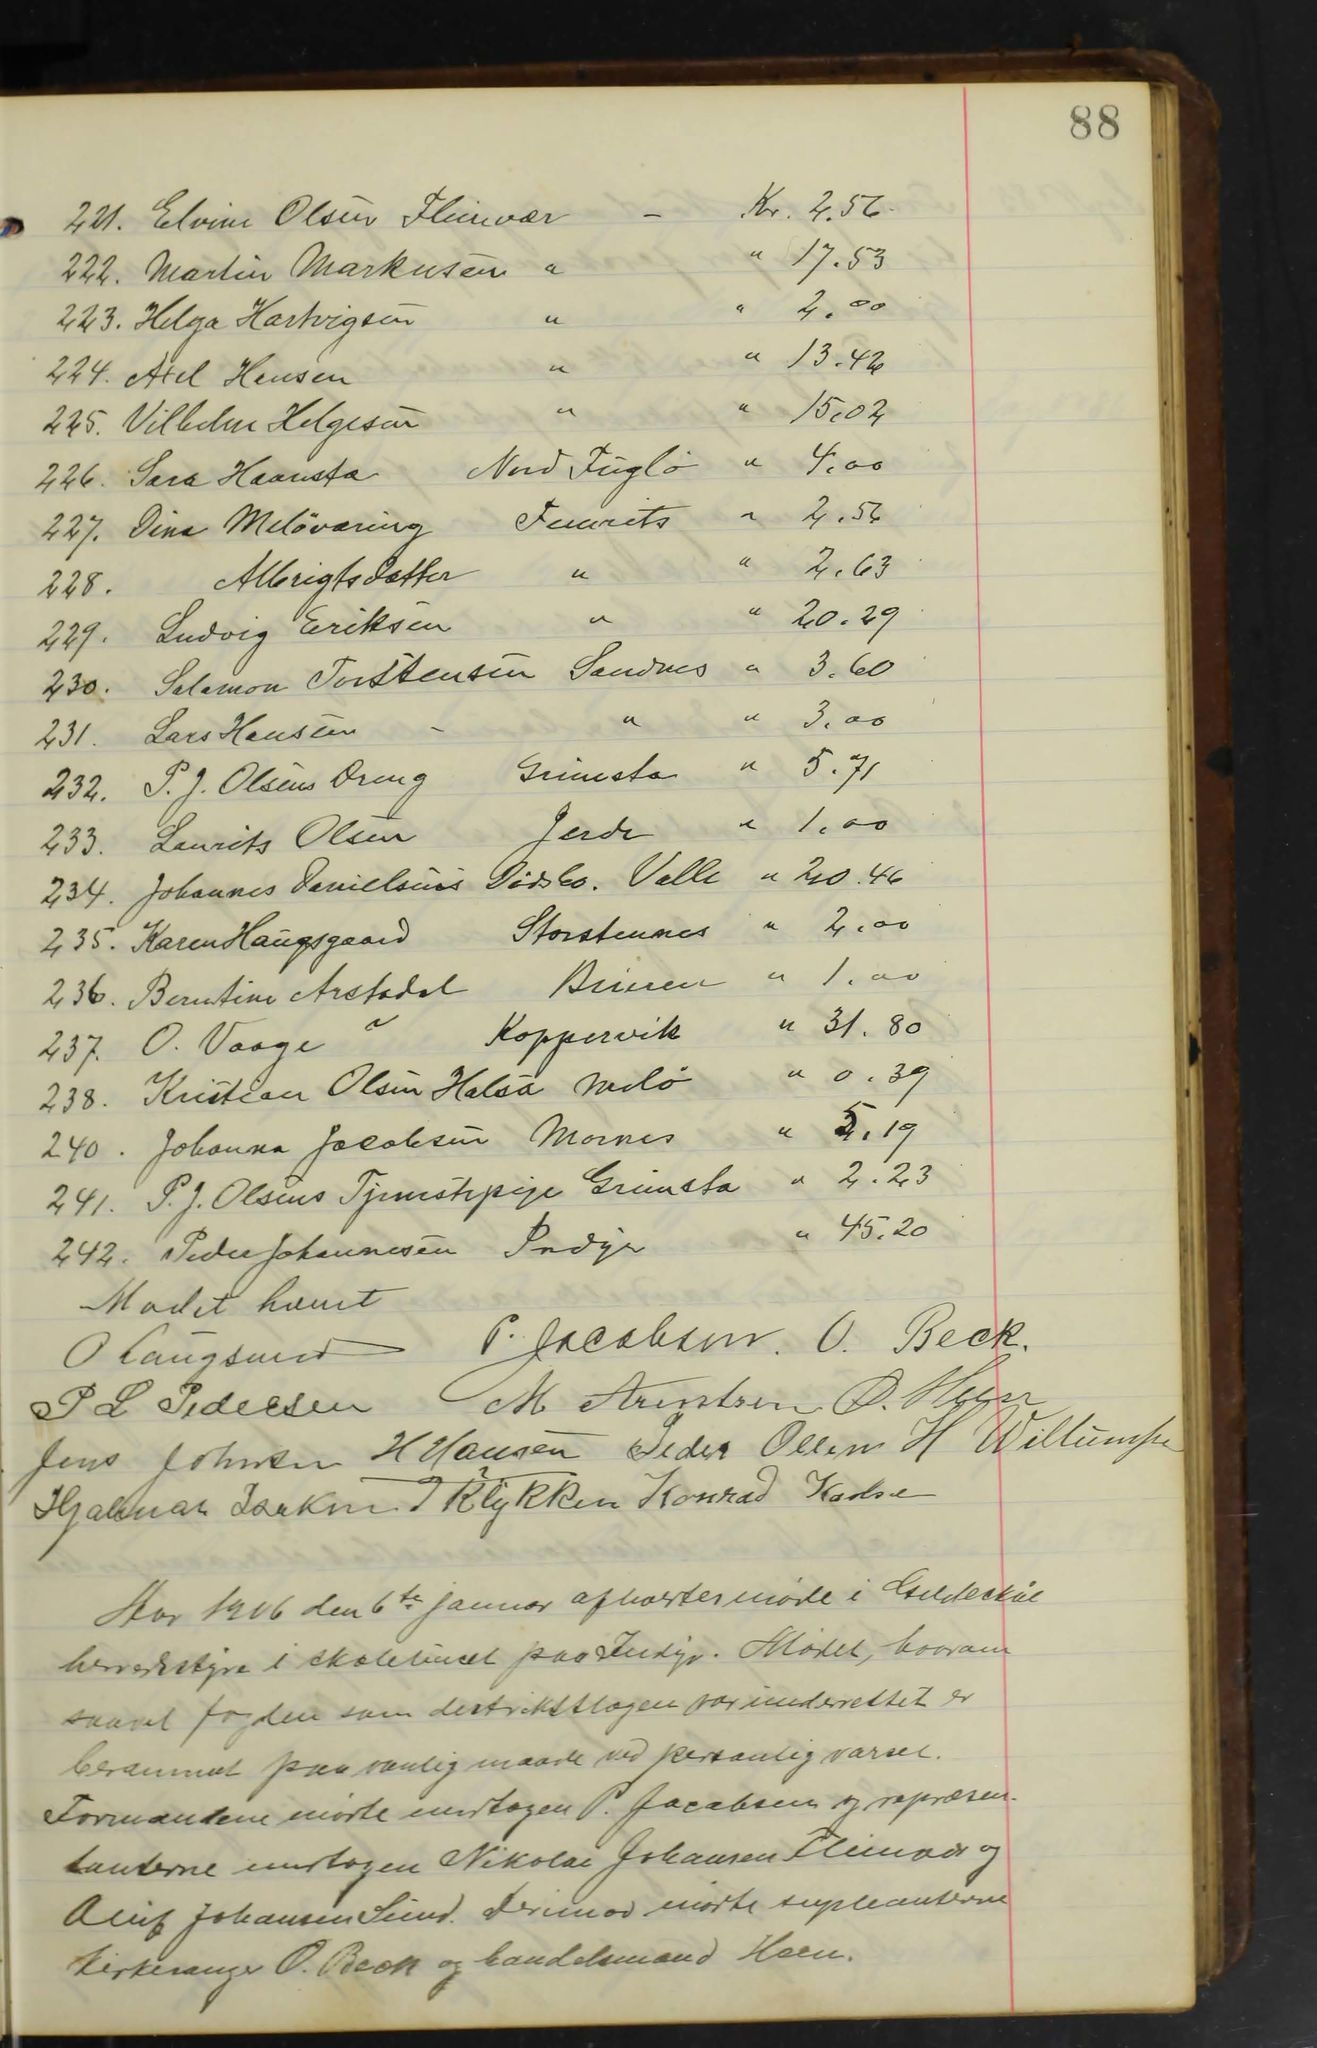 88
221. Elvine Olsen Fleinvær - Kr. 2.56
222. Martin Markusen " " 17.53
223. Helga Hartvigsen " " 2.00
224. Axel Hansen " " 13.42
225. Vilhelm Helgesen " " 15.02
226. Sara Haansta Nord Fuglö " 4.00
227. Dina Melöværing " 2.56
228. Albrigtsdatter " " 2.63
229. Ludvig Eriksen " " 20.29
230. Salamon Torstensen Sandnes " 3.60
231. Lars Hansen - " " 3.00
232. P. J. Olsens Dreng Grimsta " 5.71
233. Laurits Olsen " 1.00
234. Johannes Danielsens Dödsbo. Valle " 20.46
235. Karen Haugsgaard Storstennes " 2.00
236. Berntine Arstadal " 1.00
237. O. Vaage Koppervik " 31.80
238. Kristian Olsen Halsa Melö " 0.39
240. Johanna Jacobsen Mornes " 5.19
241. P. J. Olsens Tjenestepige Grimsta " 2.23
242. Peder Johannesen Indyr " 45.20
Mödet hævet
O Langsund P. Jacobsen. O. Beck.
P L Pedersen M Arentsen O. Heen
Jens Johnsen H Hansen Peder Olsen H Willumsen
Hjalmar Isaksen I Klykken Konrad Karlsen
Aar 1906 den 6te januar afholdtes möde i Gildeskål
herredstyre i skolehuset paa Indyr. Mödet, hvorom
saavel fogden som destriktslægen var underrettet er
berammet paa vanlig maade ved personlig varsel.
Formændene mödte undtagen P. Jacobsen og repræsen-
tanterne undtagen Nikolai Johansen Fleinvær og
Oluf Johansen Sund. Derimod mödte supleanterne
kirkesanger O. Beck og handelsmand Heen.